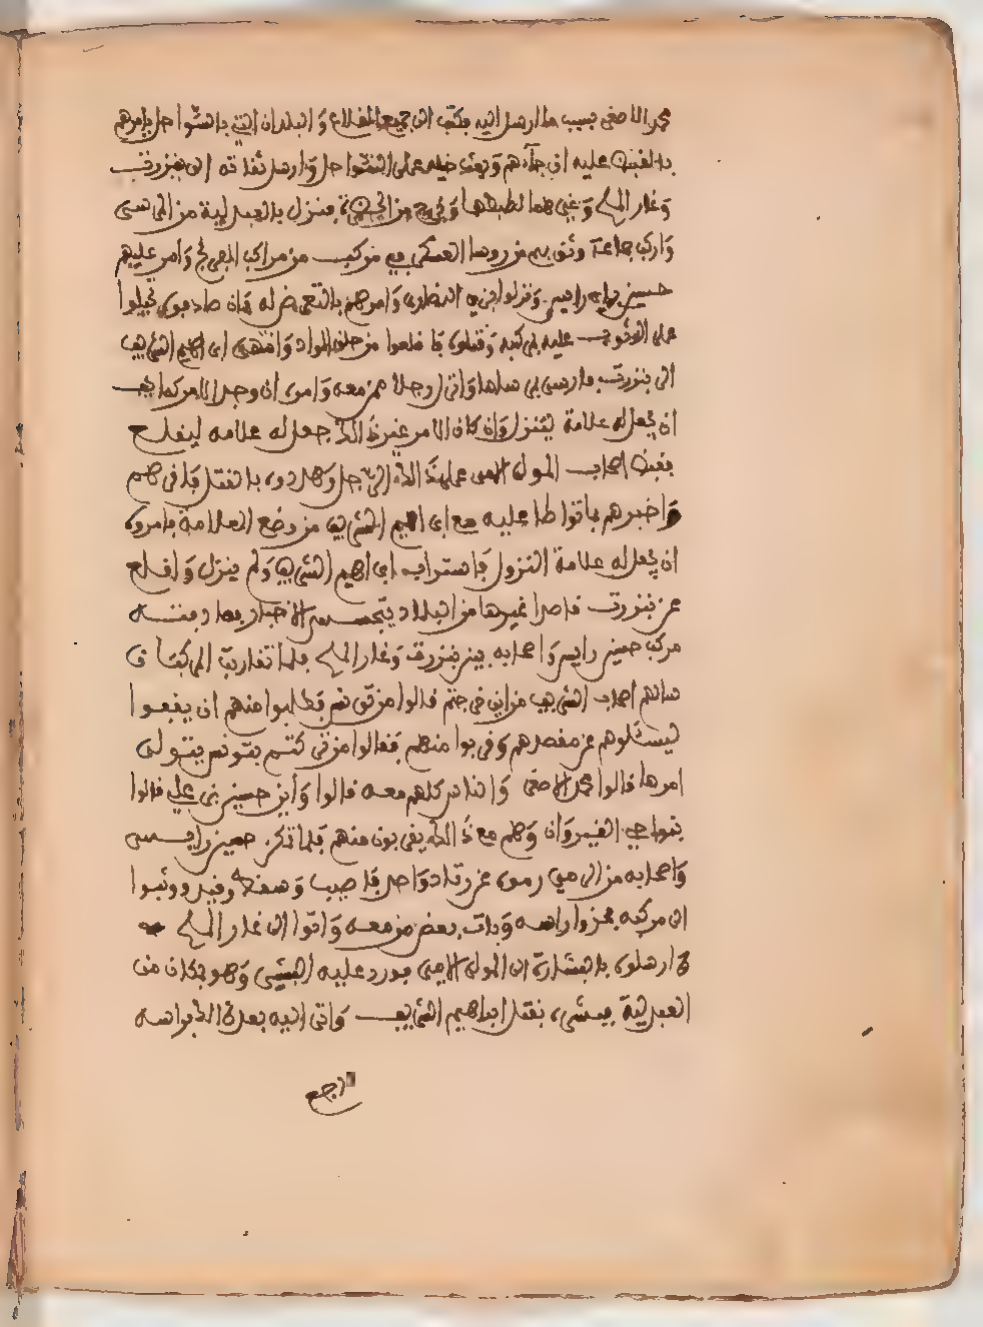 محمد الاصغر بسبب ما ارسل اليه فكتب الى جميع القلاع والبلدان التي بالشواحل يامرهم
بالقبض عليه ان جاءهم وبعث خيله على الشواحل وارسل ثقاته الى بنزرت
وغار الملح وغيرهما لضبطها وخرج من الحضرة فنزل بالعبدلية من المرسى
واركب جماعة وثق بهم من روسا العسكر في مركب من مراكب الافرنج وامر عليهم
حسين رايس ونزلوا بزي النصارى وامرهم بالتعرض له فان صادفوه تحيلوا
على الوثوب عليه في مركبه وقتلوه فاقلعوا من حلق الواد وانتهى ابراهيم الشريف
الى بنزرت فارسى بساحلها وانزل رجلا ممن معه وامره ان وجد الامر كما يحب
ان يجعل له علامة لينزل وان كان الامر غير ذالك جعل له علامة ليقلع
فقبض اصحاب المولى الامير على ذالك الرجل وهددوه بالقتل فاقر لهم
واخبرهم بما تواطا عليه مع ابراهيم الشريف من وضع العلامة فامروه
ان يجعل له علامة النزول فاستراب ابراهيم الشريف ولم ينزل واقلع
عن بنزرت قاصدا غيرها من البلاد يتجسس الاخبار فصادفته
مركب حسين رايس واصحابه بين بنزرت وغار الملح فلما تقاربت المركبتان
سالهم اصحاب الشريف من اين خرجتم قالوا من تونس فطلبوا منهم ان يقفوا
ليسئلوهم عن مقصدهم وقربوا منهم فقالوا من تركتم بتونس يتولى
امرها قالوا محمد الاصغر والناس كلهم معه قالوا واين حسين بن علي قالوا
بنواحي القيروان وهم مع ذالك يقربون منهم فلما تمكن حسين رايس
واصحابه من الرمي رموه عن زناد واحد فاصيب وسقط وقيذ ووثبوا
الى مركبه فحزوا راسه وفات بعض من معه واتوا الى غار الملح
وارسلوه بالبشارة الى المولى الامير فورد عليه البشير وهو بمكان من
العبدلية يمشى، بقتل ابراهيم الشريف واتى اليه بعد ذالك براسه
راجع